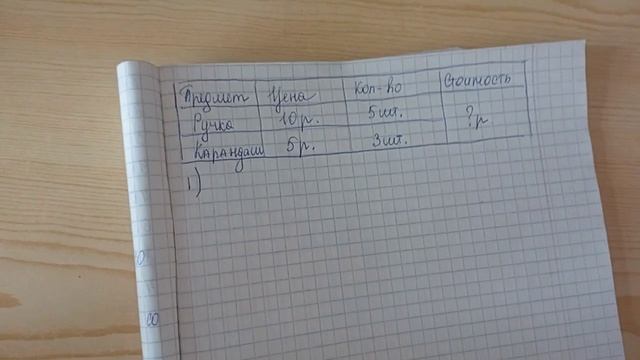 Предмет Цена Кол-во Стоимость
Ручка 10р. 5шт. ?р
Карандаш 5р. 3шт.
1)